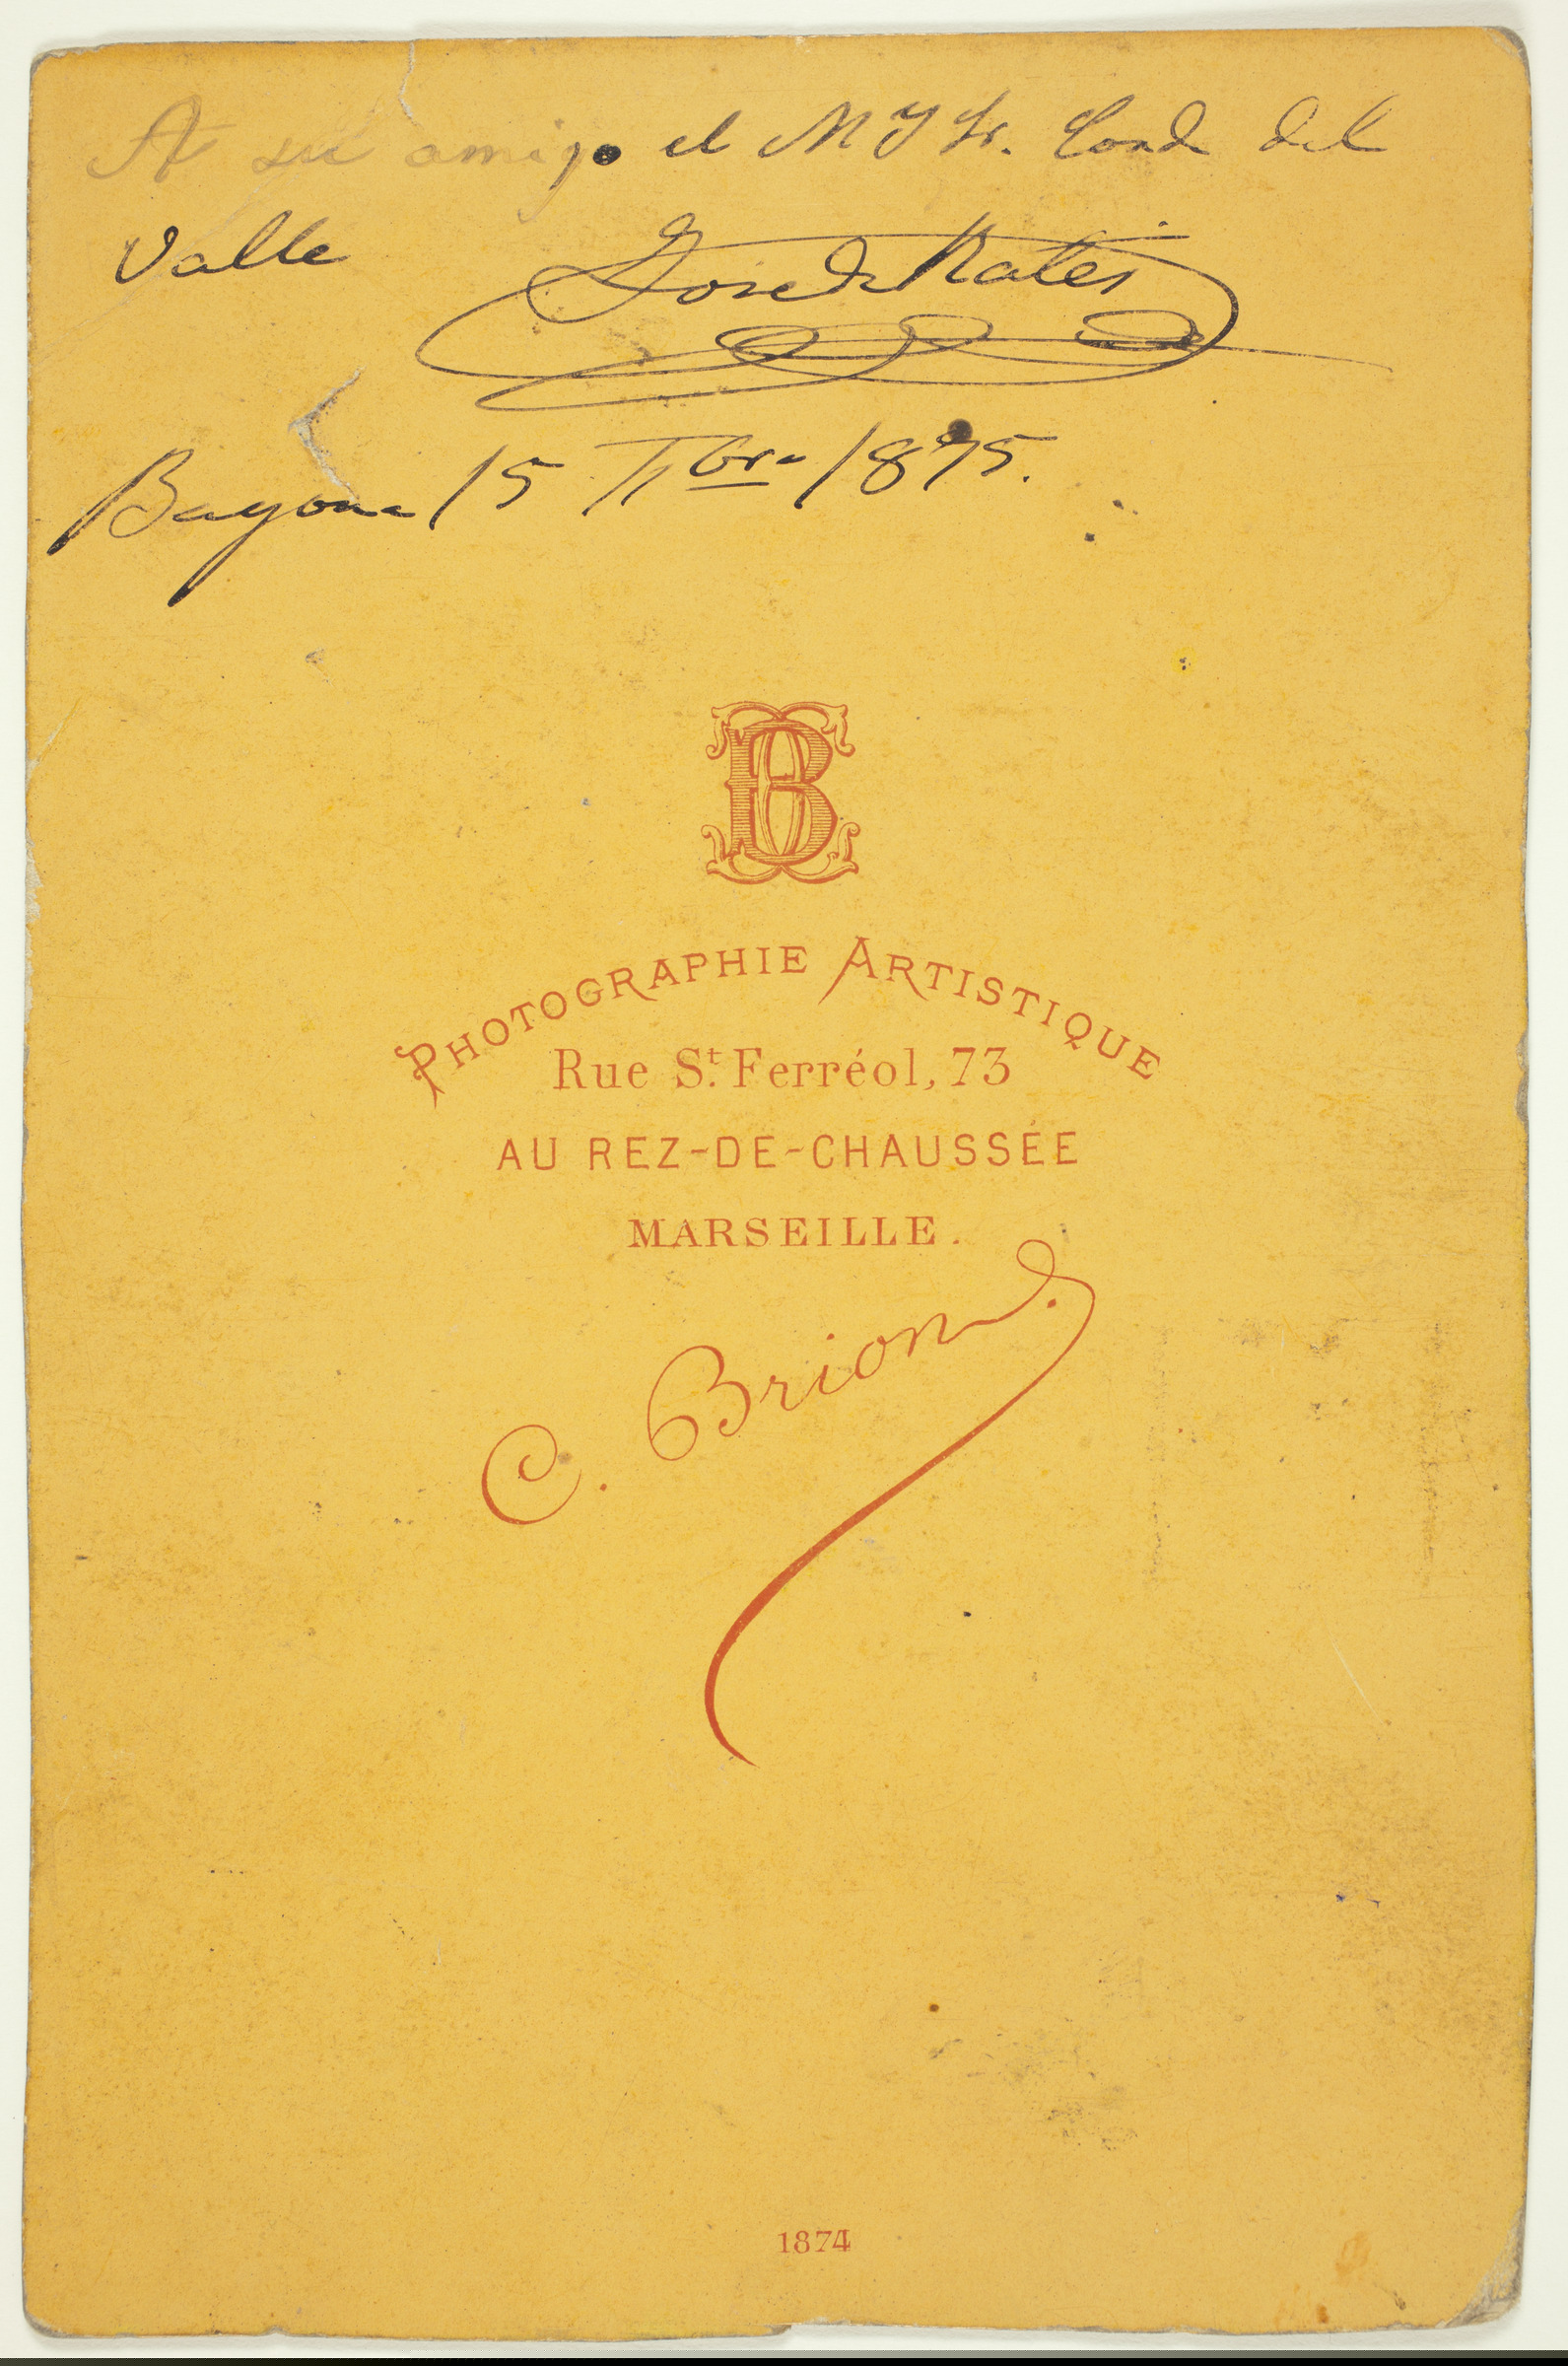 A su amigo el M Y Sr. Conde del
Valle José de Rates
Bayona 15 7bre 1875.
B
PHOTOGRAPHIE ARTISTIQUE
Rue St. Ferréol, 73
AU REZ-DE-CHAUSSÉE
MARSEILLE.
C. Brion.
1874